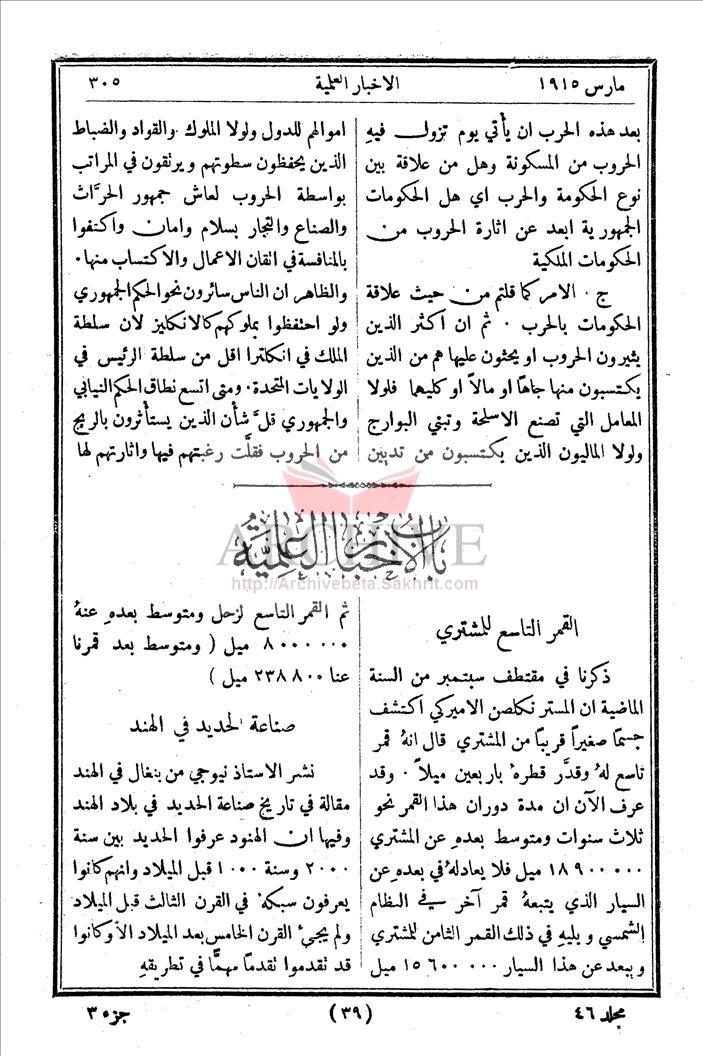 مارس ١٩١٥
الاخبار العلمية
٣٠٥
بعد هذه الحرب ان يأتي يوم تزول فيهِ
الحروب من المسكونة وهل من علاقة بين
نوع الحكومة والحرب اي هل الحكومات
الجمهورية ابعد عن اثارة الحروب من
الحكومات الملكية
ج ٠ الامر كما قلتم من حيث علاقة
الحكومات بالحرب ٠ ثم ان اكثر الذين
يثيرون الحروب او يحثون عليها هم من الذين
يكتسبون منها جاهًا او مالاً او كليهما فلولا
المعامل التي تصنع الاسلحة وتبني البوارج
ولولا الماليون الذين يكتسبون من تديين
اموالهم للدول ولولا الملوك والقواد والضباط
الذين يحفظون سطوتهم ويرتقون في المراتب
بواسطة الحروب لعاش جمهور الحرَّاث
والصناع والتجار بسلام وامان واكتفوا
بالمنافسة في اتقان الاعمال والاكتساب منها ٠
والظاهر ان الناس سائرون نحو الحكم الجمهوري
ولو احتفظوا بملوكهم كالانكليز لان سلطة
الملك في انكلترا اقل من سلطة الرئيس في
الولايات المتحدة ٠ ومتى اتسع نطاق الحكم النيابي
والجمهوري قلَّ شأن الذين يستأثرون بالربح
من الحروب فقلَّت رغبتهم فيها واثارتهم لها
باب الاخبار العلمية
ARCHIVE
http://Archivebeta.Sakhrit.com
القمر التاسع للمشتري
ذكرنا في مقتطف سبتمبر من السنة
الماضية ان المستر نكلصن الاميركي اكتشف
جسمًا صغيراً قريبًا من المشتري قال انهُ قمر
تاسع لهُ وقدَّر قطرهُ باربعين ميلاً ٠ وقد
عرف الآن ان مدة دوران هذا القمر نحو
ثلاث سنوات ومتوسط بعدهِ عن المشتري
١٨٩٠٠٠٠٠ ميل فلا يعادلهُ في بعدهِ عن
السيار الذي يتبعهُ قمر آخر في النظام
الشمسي ويليهِ في ذلك القمر الثامن للمشتري
ويبعد عن هذا السيار ١٥٦٠٠٠٠٠ ميل
ثم القمر التاسع لزحل ومتوسط بعدهِ عنهُ
٨٠٠٠٠٠٠ ميل ( ومتوسط بعد قمرنا
عنا ٢٣٨٨٠٠ ميل )
صناعة الحديد في الهند
نشر الاستاذ نيوجي من بنغال في الهند
مقالة في تاريخ صناعة الحديد في بلاد الهند
وفيها ان الهنود عرفوا الحديد بين سنة
٢٠٠٠ وسنة ١٠٠٠ قبل الميلاد وانهم كانوا
يعرفون سبكهُ في القرن الثالث قبل الميلاد
ولم يجئ القرن الخامس بعد الميلاد الا وكانوا
قد تقدموا تقدمًا مهمًّا في تطريقهِ
مجلد ٤٦
(٣٩)
جزء ٣